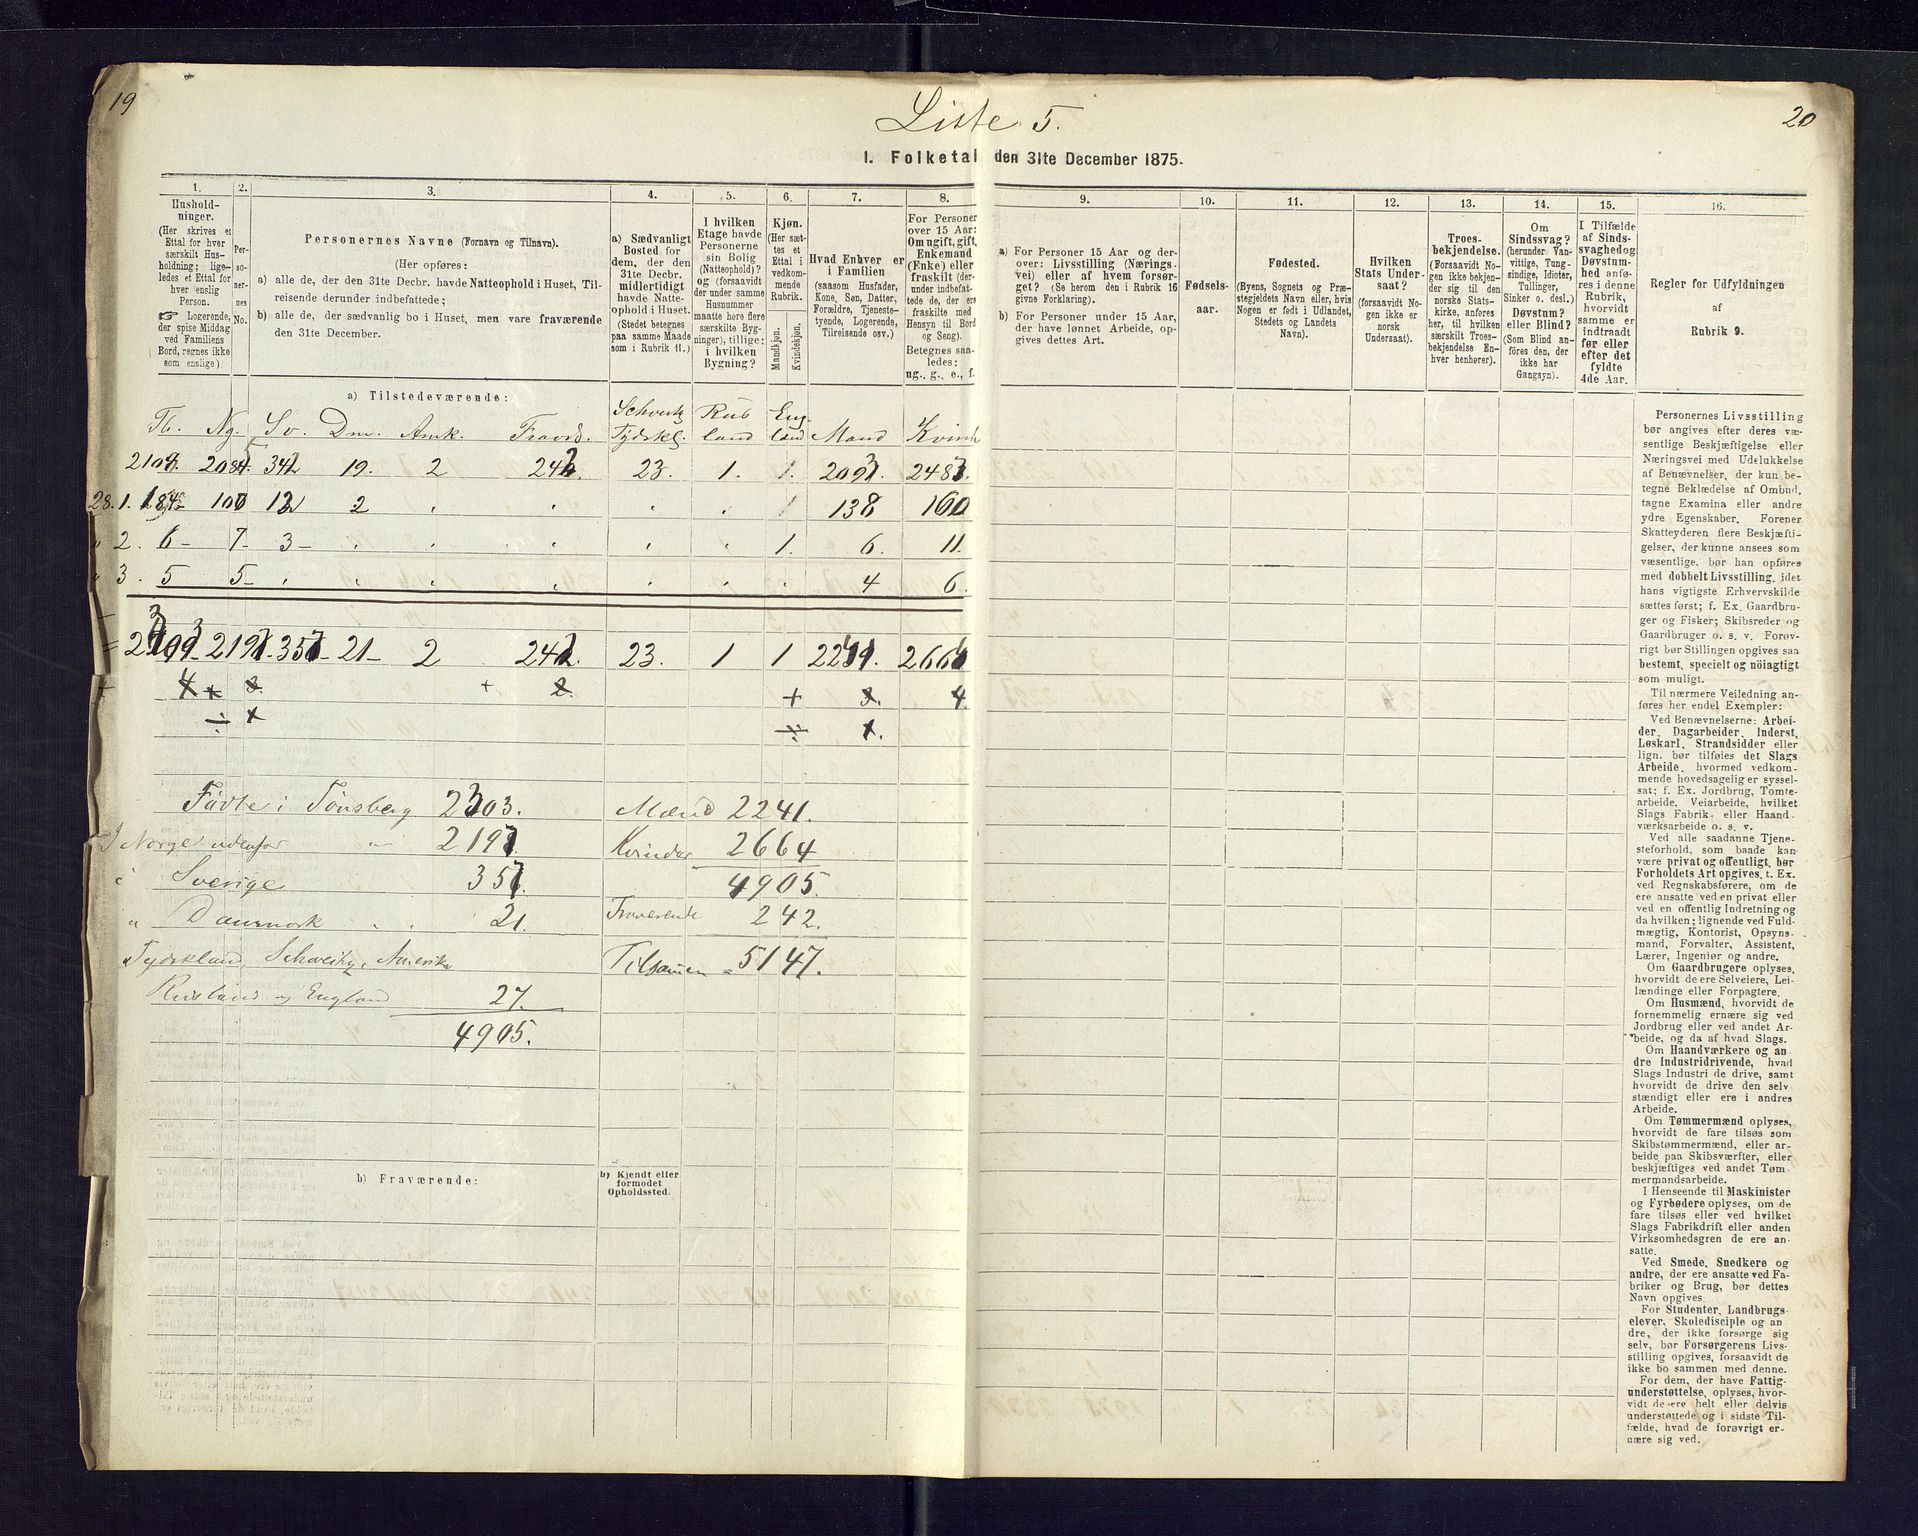 19
Liste 5.
20
1. Folketal den 31te December 1875.
1.
2.
3.
4.
5.
6.
7.
8.
9.
10.
11.
12.
13.
14.
15.
16.
Hushold-
ninger.
(Her skrives et
Ettal for hver
særskilt Hus-
holdning; lige-
ledes et Ettal for
hver enslig
Person.
☞ Logerende,
der spise Middag
ved Familiens
Bord, regnes ikke
som enslige).
Per-
so-
ner-
nes
No.
Personernes Navne (Fornavn og Tilnavn).
(Her opføres:
a) alle de, der den 31te Decbr. havde Natteophold i Huset, Til-
reisende derunder indbefattede;
b) alle de, der sædvanlig bo i Huset, men vare fraværende
den 31te December.
a) Sædvanligt
Bosted for
dem, der den
31te Decbr.
midlertidigt
havde Natte-
ophold i Huset.
(Stedet betegnes
paa samme Maade
som i Rubrik 11.)
I hvilken
Etage havde
Personerne
sin Bolig
(Natteophold)?
og (forsaavidt
der under samme
Husnummer
maatte høre flere
særskilte Byg-
ninger), tillige:
i hvilken
Bygning?
Kjøn.
(Her sæt-
tes et
Ettal i
vedkom-
mende
Rubrik.
Mandkjøn.
Kvindekjøn.
Hvad Enhver er
i Familien
(saasom Husfader,
Kone, Søn, Datter,
Forældre, Tjeneste-
tyende, Logerende,
Tilreisende osv.)
For Personer
over 15 Aar:
Om ugift, gift,
Enkemand
(Enke) eller
fraskilt (der-
under indbefat-
tede de, der ere
fraskilte med
Hensyn til Bord
og Seng).
Betegnes saa-
ledes:
ug., g., e., f.
a) For Personer 15 Aar og der-
over: Livsstilling (Nærings-
vei) eller af hvem forsør-
get? (Se herom den i Rubrik 16
givne Forklaring).
b) For Personer under 15 Aar,
der have lønnet Arbeide, op-
gives dettes Art.
Fødsels-
aar.
Fødested.
(Byens, Sognets og Præ-
stegjeldets Navn eller, hvis
Nogen er født i Udlandet,
Stedets og Landets
Navn).
Hvilken
Stats Under-
saat?
(forsaavidt No-
gen ikke er
norsk
Undersaat).
Troes-
bekjendelse.
(Forsaavidt No-
gen ikke bekjen-
der sig til den
norske Stats-
kirke, anføres
her, til hvilken
særskilt Troes-
bekjendelse En-
hver henhører).
Om
Sindssvag?
(herunder Van-
vittige, Tung-
sindige, Idioter,
Tullinger,
Sinker o. desl.)
Døvstum?
eller Blind?
(Som Blind an-
føres den, der
ikke har
Gangsyn).
I Tilfælde
af Sinds-
svaghed og
Døvstum-
hed anfø-
res i denne
Rubrik,
hvorvidt
samme er
indtraadt
før eller
efter det
fyldte
4de Aar.
Regler for Udfyldningen
af
Rubrik 9.
a) Tilstedeværende:
Tb. Ng. Sv. Dm. Amk. Fravd. Schveitz Tydskl. Rusland England Mand Kvinde
19. 2 23. 1. 1.
2 138 160
" 2. 6 7 3 1. 6. 11.
" 3. 5 5 4 6.
21 2 242. 23. 1 1
Fødte i Tønsberg 2303.
I Norge udenfor " 2197.
Sverige 357.
" Danmark 21.
" Tydskland, Schveitz, Amerika
Rusland og England 27.
4905.
Mænd 2241.
Kvinder 2664
4905.
Fraverende 242.
Tilsamen = 5147.
b) Fraværende:
b) Kjendt eller
formodet
Opholdssted.
Personernes Livsstilling
bør angives efter deres væ-
sentlige Beskjæftigelse eller
Næringsvei med Udelukkelse
af Benævnelser, der kun be-
tegne Beklædelse af Ombud,
tagne Examina eller andre
ydre Egenskaber. Forener
Skatteyderen flere Beskjæfti-
gelser, der kunne ansees som
væsentlige, bør han opføres
med dobbelt Livsstilling, idet
hans vigtigste Erhvervskilde
sættes først; f. Ex. Gaardbru-
ger og Fisker; Skibsreder og
Gaardbruger o. s. v. Forøv-
rigt bør Stillingen opgives saa
bestemt, specielt og nöiagtigt
som muligt.
Til nærmere Veiledning an-
føres her endel Exempler:
Ved Benævnelserne: Arbei-
der, Dagarbeider, Inderst,
Løskarl, Strandsidder eller
lign. bør tilføies det Slags
Arbeide, hvormed vedkom-
mende hovedsagelig er syssel-
sat; f. Ex. Jordbrug, Tomte-
arbeide, Veiarbeide, hvilket
Slags Fabrik- eller Haand-
værksarbeide o. s. v.
Ved alle saadanne Tjene-
steforhold, som baade kan
være privat og offentligt, bør
Forholdets Art opgives, t. Ex.
ved Regnskabsførere, om de
ere ansatte ved en privat eller
ved en offentlig Indretning og
da hvilken; lignende ved Fuld-
mægtig, Kontorist, Opsyns-
mand, Forvalter, Assistent,
Lærer, Ingeniør og andre.
Om Gaardbrugere oplyses,
hvorvidt de ere Selveiere, Lei-
lændinge eller Forpagtere.
Om Husmænd, hvorvidt de
fornemmelig ernære sig ved
Jordbrug eller ved andet Ar-
beide, og da af hvad Slags.
Om Haandværkere og an
dre Industridrivende, hvad
Slags Industri de drive, samt
hvorvidt de drive den selv
stændigt eller ere i andres
Arbeide.
Om Tømmermænd oplyses,
hvorvidt de fare tilsøs som
Skibstømmermænd, eller ar-
beide paa Skibsværfter, eller
beskjæftiges ved andet Tøm-
mermandsarbeide.
I Henseende til Maskinister
og Fyrbødere oplyses, om de
fare tilsøs eller ved hvilket
Slags Fabrikdrift eller anden
Virksomhedsgren de ere an-
satte.
Ved Smede, Snedkere og
andre, der ere ansatte ved Fa-
briker og Brug, bør dettes
Navn opgives.
For Studenter, Landbrugs-
elever, Skoledisciple og an
dre, der ikke forsørge sig
selv, bør Forsørgerens Livs-
stilling opgives, forsaavidt de
ikke bo sammen med denne.
For dem, der have Fattig-
understøttelse, oplyses, hvor-
vidt de ere helt eller delvis
understøttede og i sidste Til-
fælde, hvad de forøvrigt er-
nære sig ved.